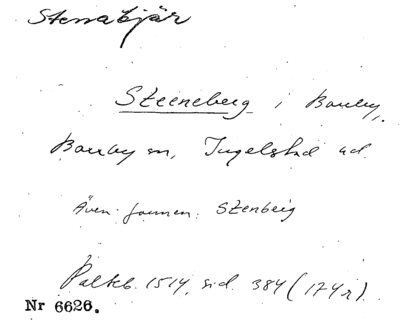 Stenabjär
Steeneberg i Borrby,
Borrby sn, Ingelstad hd.
Även formen: Stenberg
Paltkb. 1514, sid. 384 (174 r)
Nr 6626.